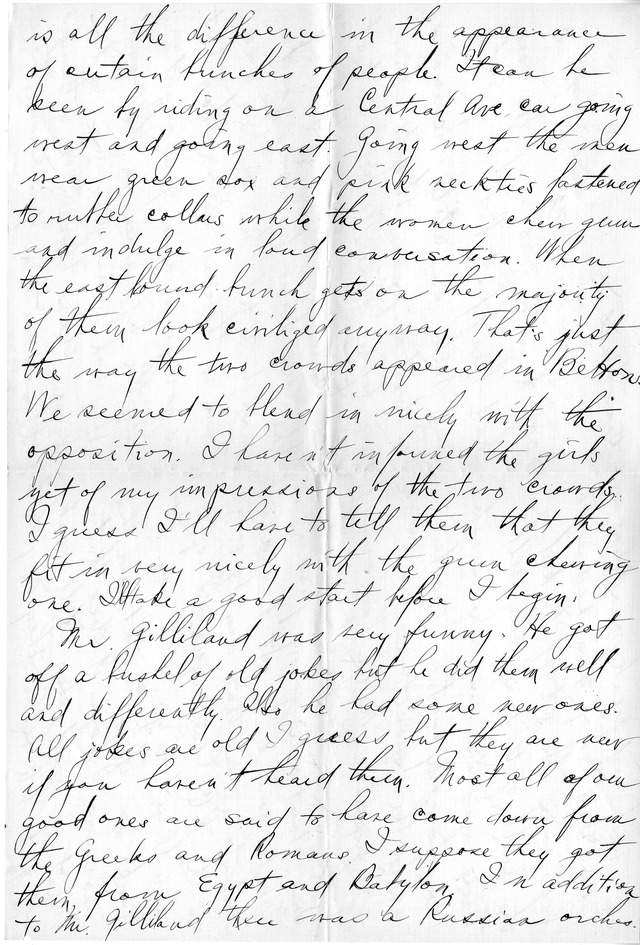 is all the difference in the appearance
of certain bunches of people. It can be
seen by riding on a Central Ave. car going
west and going east. Going west the men
wear green sox and pink neckties fastened
to rubber collars while the women chew gum
and indulge in loud conversation. When
the eastbound bunch gets on the majority
of them look civilized anyway. That's just
the way the two crowds appeared in Bettons.
We seemed to blend in nicely with the
opposition. I haven't informed the girls
yet of my impressions of the two crowds.
I guess I'll have to tell them that they
fit in very nicely with the gum chewing
one. I'll take a good start before I begin.
Mr. Gilliland was very funny. He got
off a bushel of old jokes but he did them well
and differently. Also he had some new ones.
All jokes are old I guess but they are new
if you haven't heard them. Most all of our
good ones are said to have come down from
the Greeks and Romans. I suppose they got
them from Egypt and Babylon. In addition
to Mr. Gilliland there was a Russian orches-